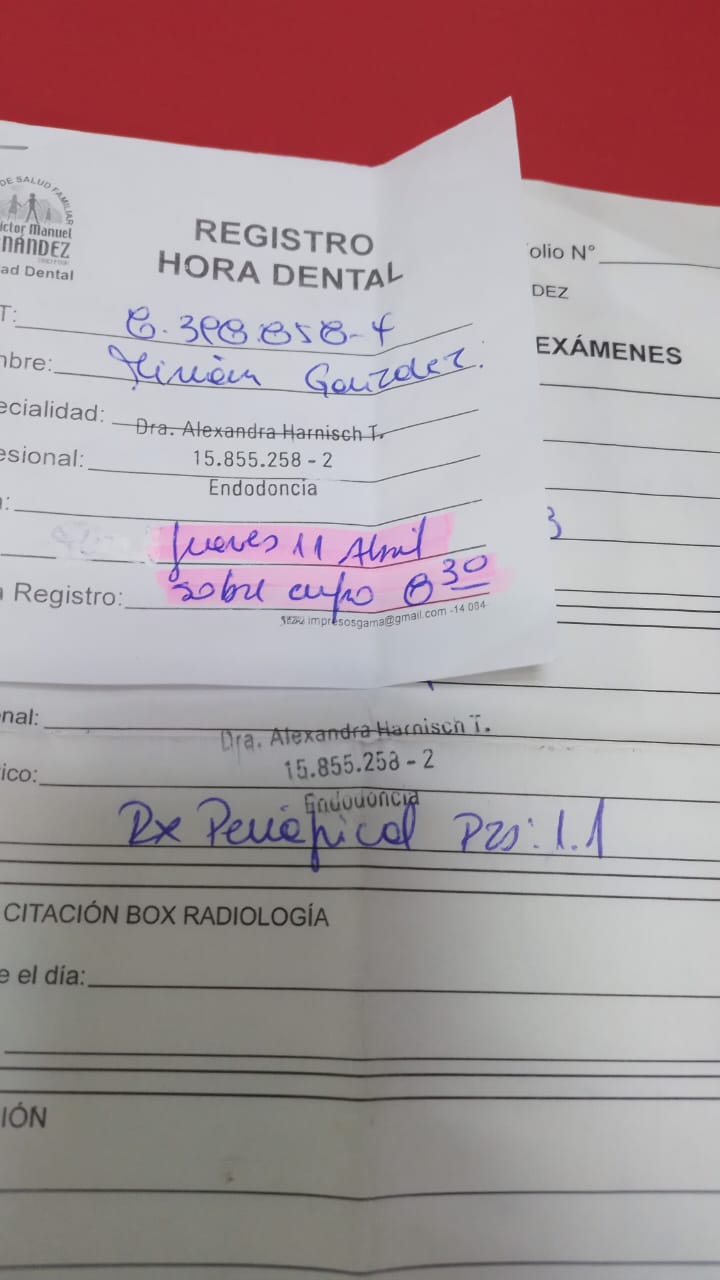 DE SALUD FAMILIAR
íctor Manuel
RNÁNDEZ
ad Dental
REGISTRO
HORA DENTAL
T: 8.398.858-4
mbre: Miriám González.
ecialidad: Dra. Alexandra Harnisch T.
esional: 15.855.258 - 2
Endodoncia
:
Jueves 11 Abril
a Registro: sobre cupo 8 30
impresosgama@gmail.com -14 084
olio N°
DEZ
EXÁMENES
3
nal: Dra. Alexandra Harnisch T.
15.855.258 - 2
ico: Endodoncia
Rx Periápical Pzs: 1.1
CITACIÓN BOX RADIOLOGÍA
e el día:
IÓN